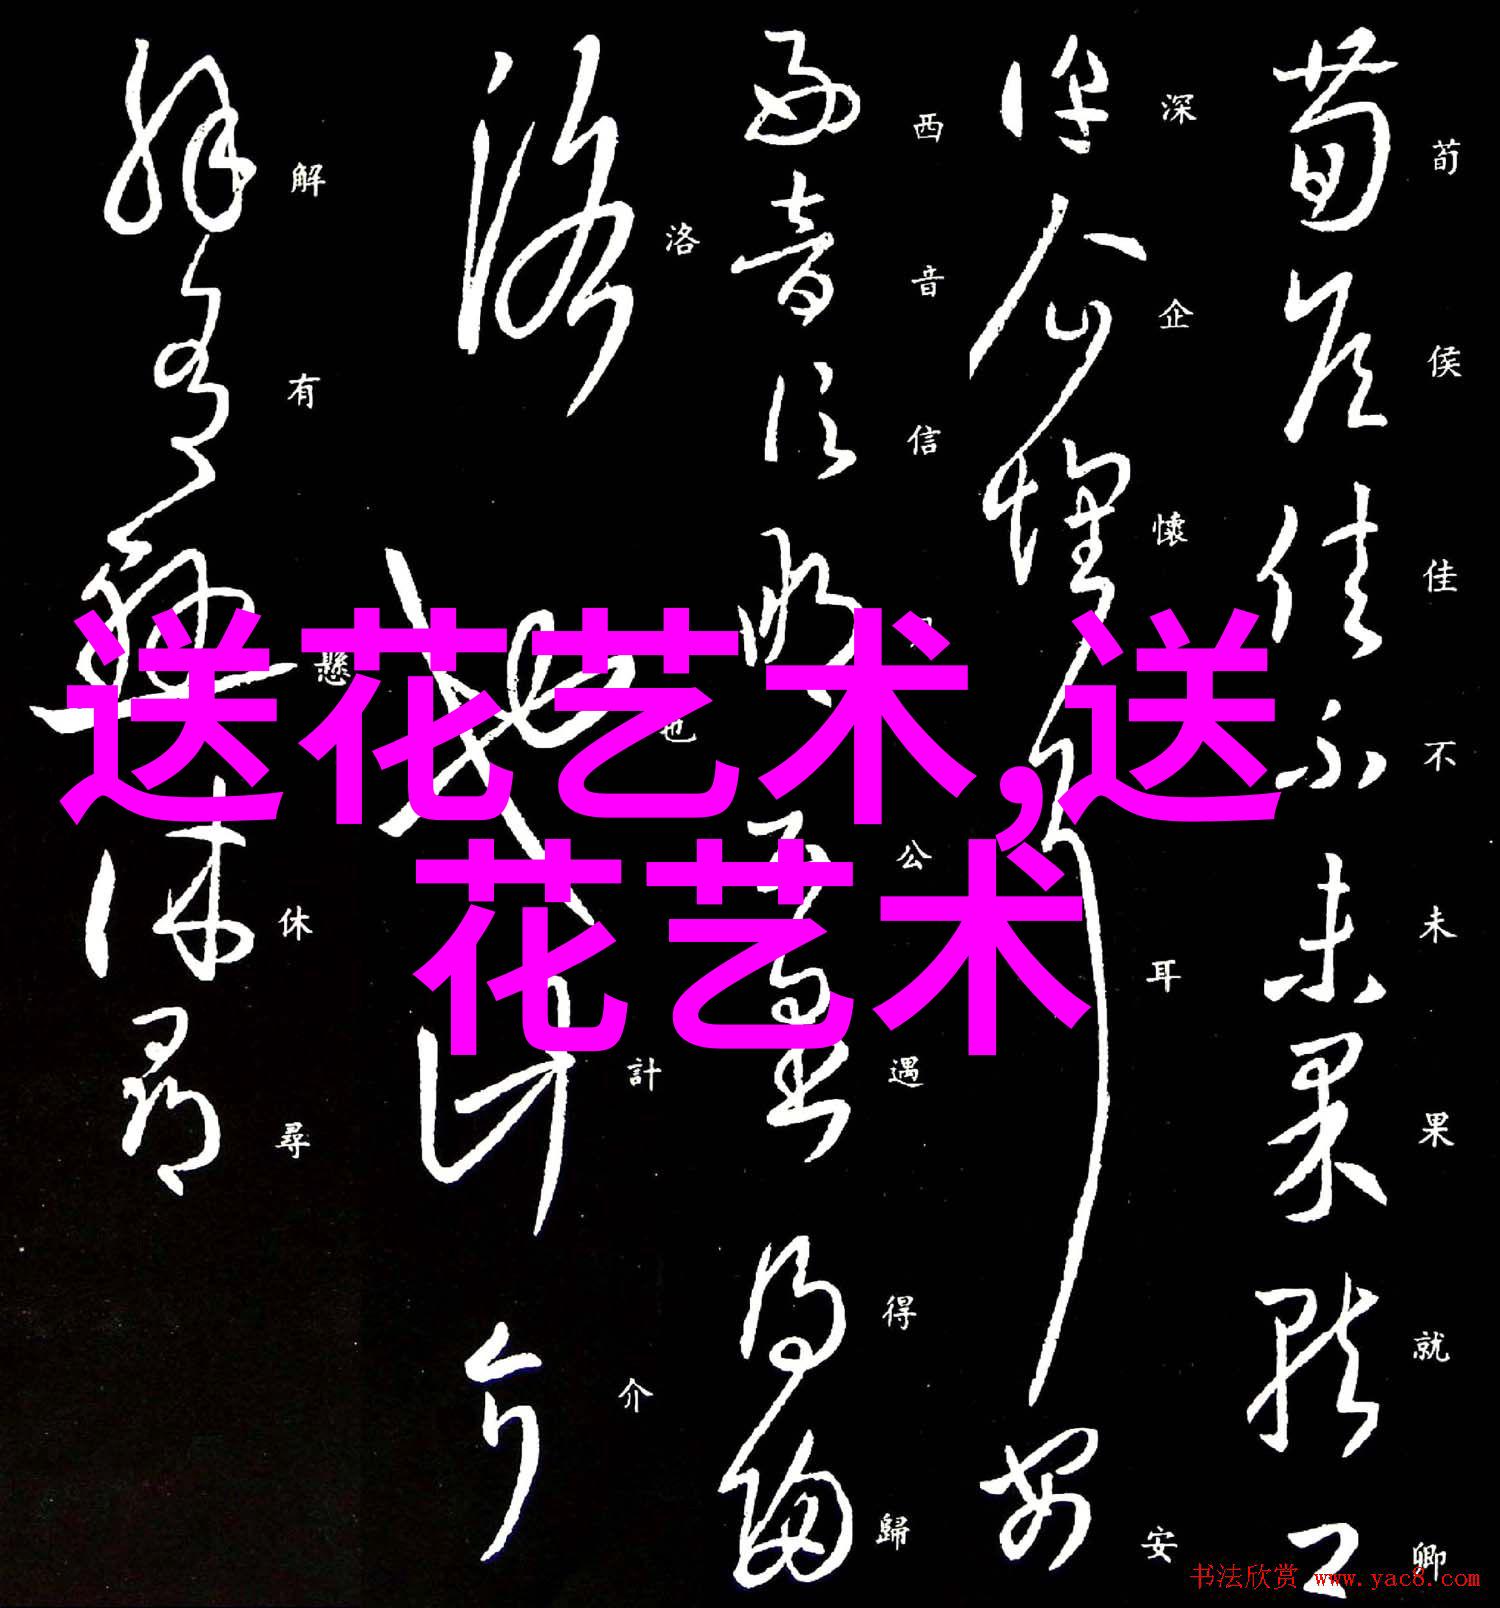 荀侯佳不未果就卿
深企懷耳安
西音信
公遇得歸
洛
也
計介
解有懸休尋
送花艺术,送
花艺术
书法欣赏 www.yac8.com